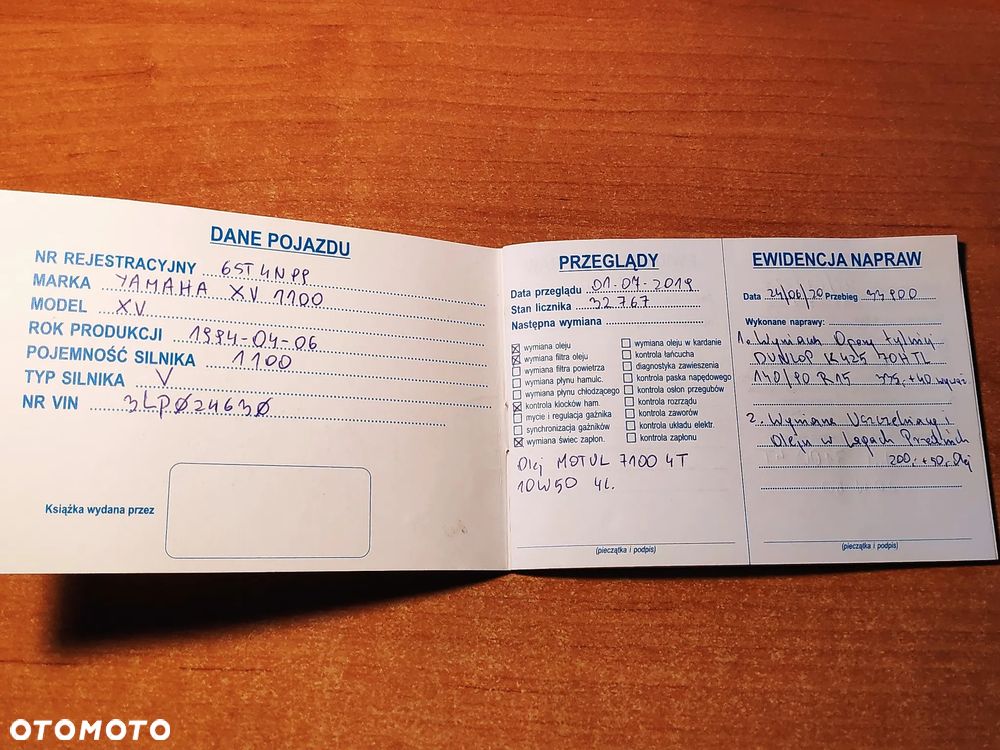 DANE POJAZDU
NR REJESTRACYJNY 6ST4NPP
MARKA YAMAHA XV 1100
MODEL XV
ROK PRODUKCJI 1994-04-06
POJEMNOŚĆ SILNIKA 1100
TYP SILNIKA V
NR VIN 3LPØ24630
Książka wydana przez
PRZEGLĄDY
Data przeglądu 01.07.2019
Stan licznika 32.767
Następna wymiana
wymiana oleju
wymiana filtra oleju
wymiana filtra powietrza
wymiana płynu hamulc.
wymiana płynu chłodzącego
kontrola klocków ham.
mycie i regulacja gaźnika
synchronizacja gaźników
wymiana świec zapłon.
wymiana oleju w kardanie
kontrola łańcucha
diagnostyka zawieszenia
kontrola paska napędowego
kontrola osłon przegubów
kontrola rozrządu
kontrola zaworów
kontrola układu elektr.
kontrola zapłonu
Olej MOTUL 7100 4T
10W50 4L.
(pieczątka i podpis)
EWIDENCJA NAPRAW
Data 24/06/20 Przebieg 33900
Wykonane naprawy:
1. Wymiana Opony tylniej
DUNLOP K425 70HTL
140/90 R15 375,- +40
2. Wymiana Uszczelniaczy i
Oleju w Lagach Przednich
200,- +50,- Olej
(pieczątka i podpis)
OTOMOTO